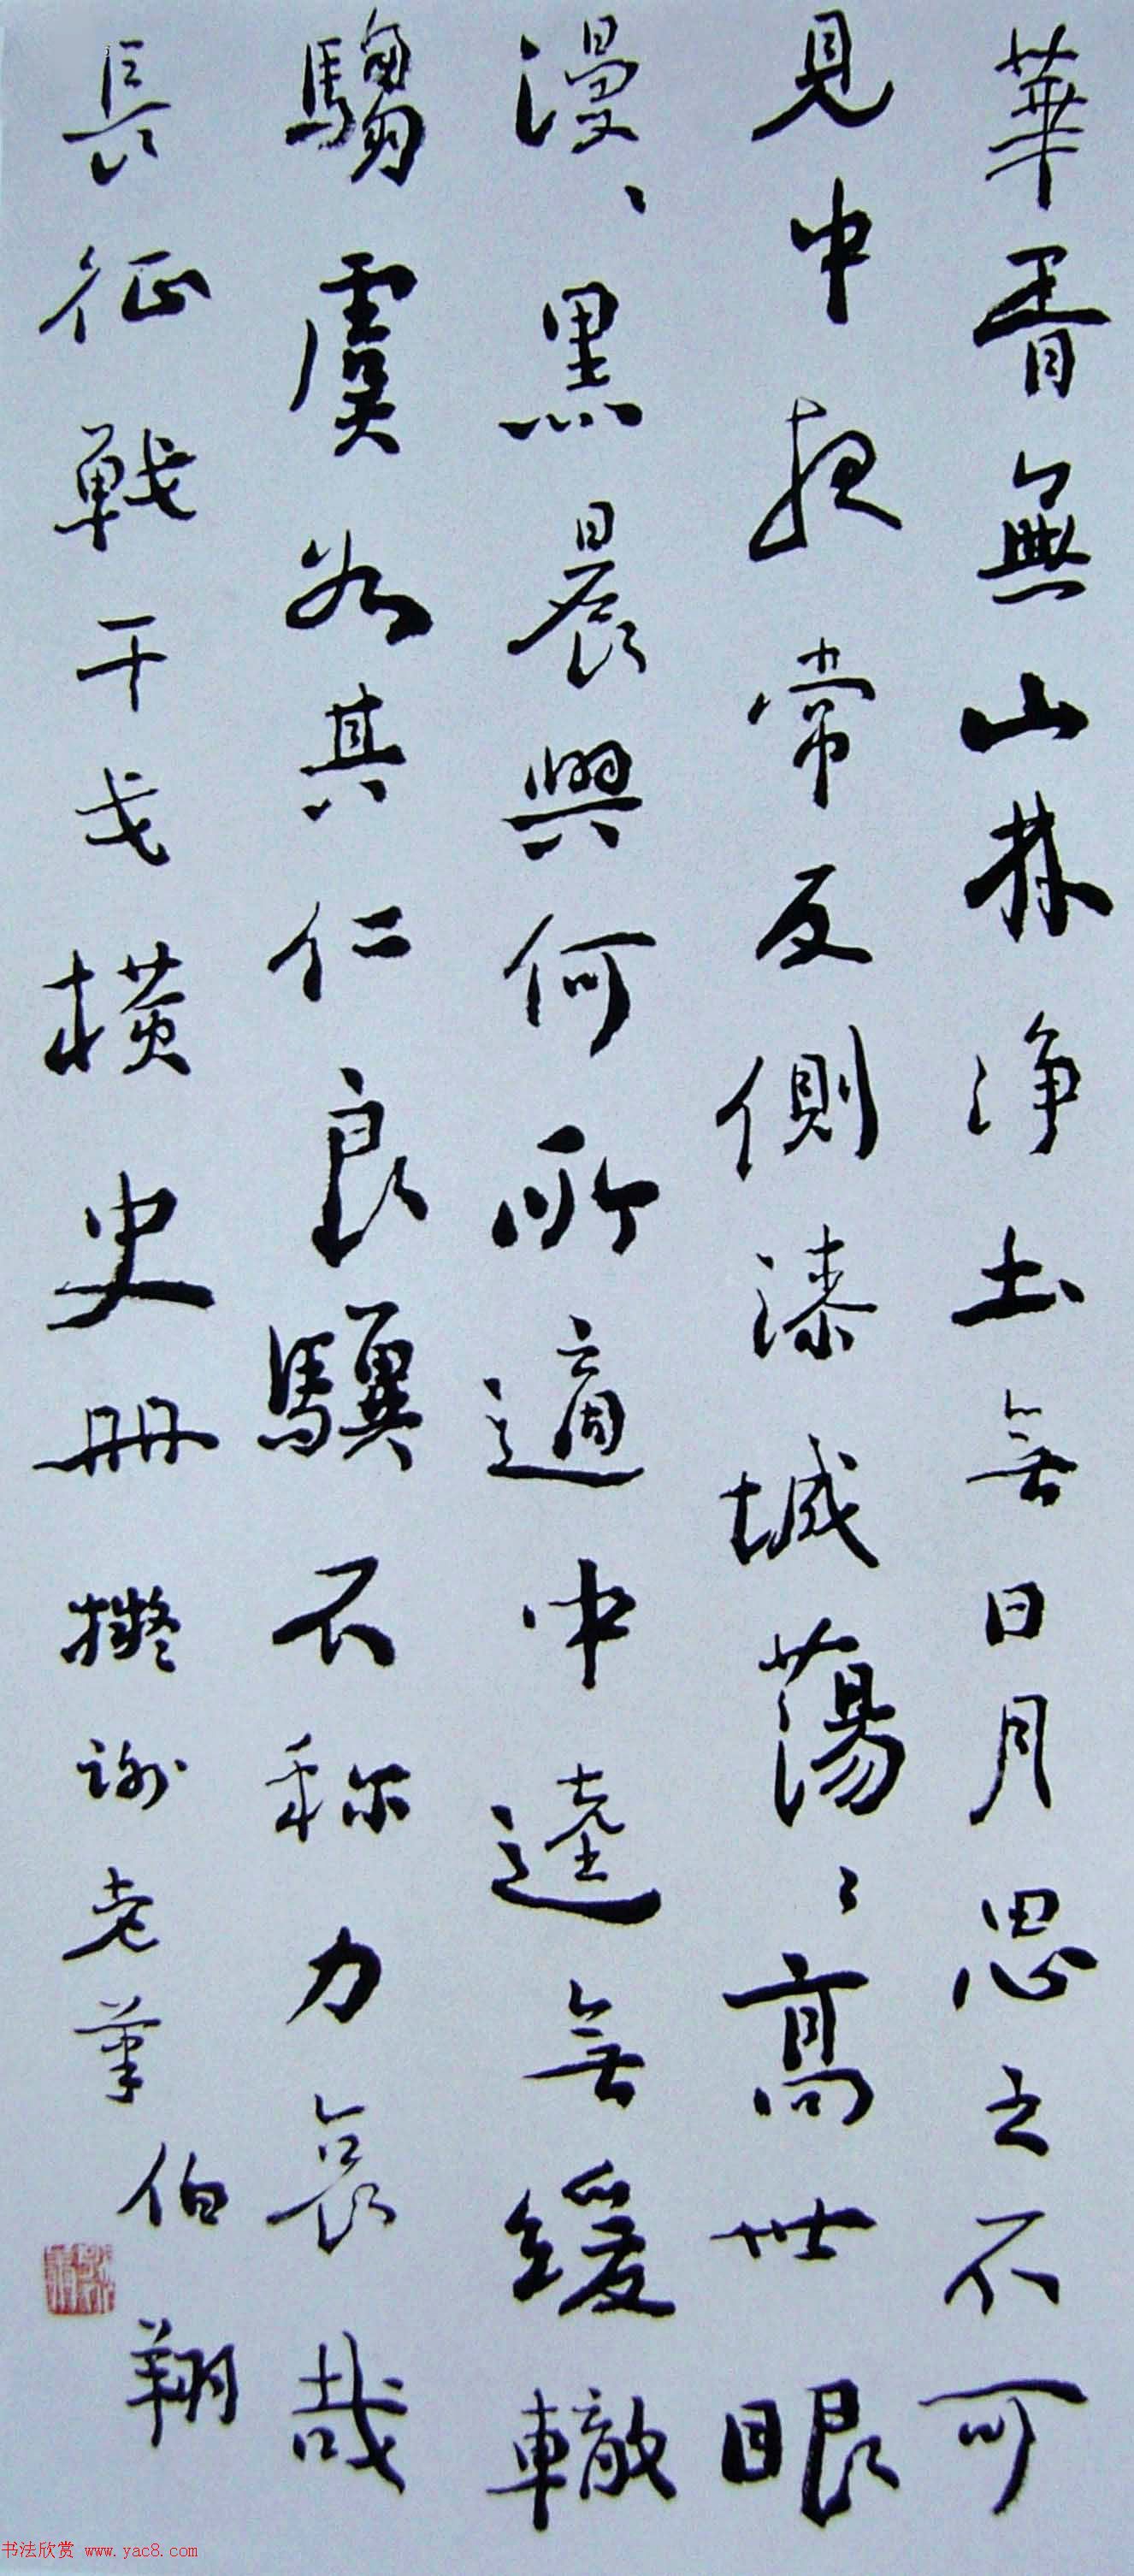 華胥無山林净土無日月思之不可
見中夜常反側漆城蕩〻高世眼
漫〻黑晨興何所適中逵無緩轍
騶虞為其仁良驥不称力哀哉
長征戰干戈橫史册擬謝老筆
伯翔
书法欣赏 www.yac8.com